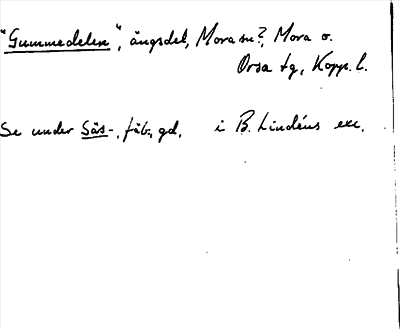 "Gummedelen", ängsdel, Mora sn?, Mora o.
Orsa tg, Kopp. l.
Se under Sås-, fäb, gd, i B. Lindéns exc.